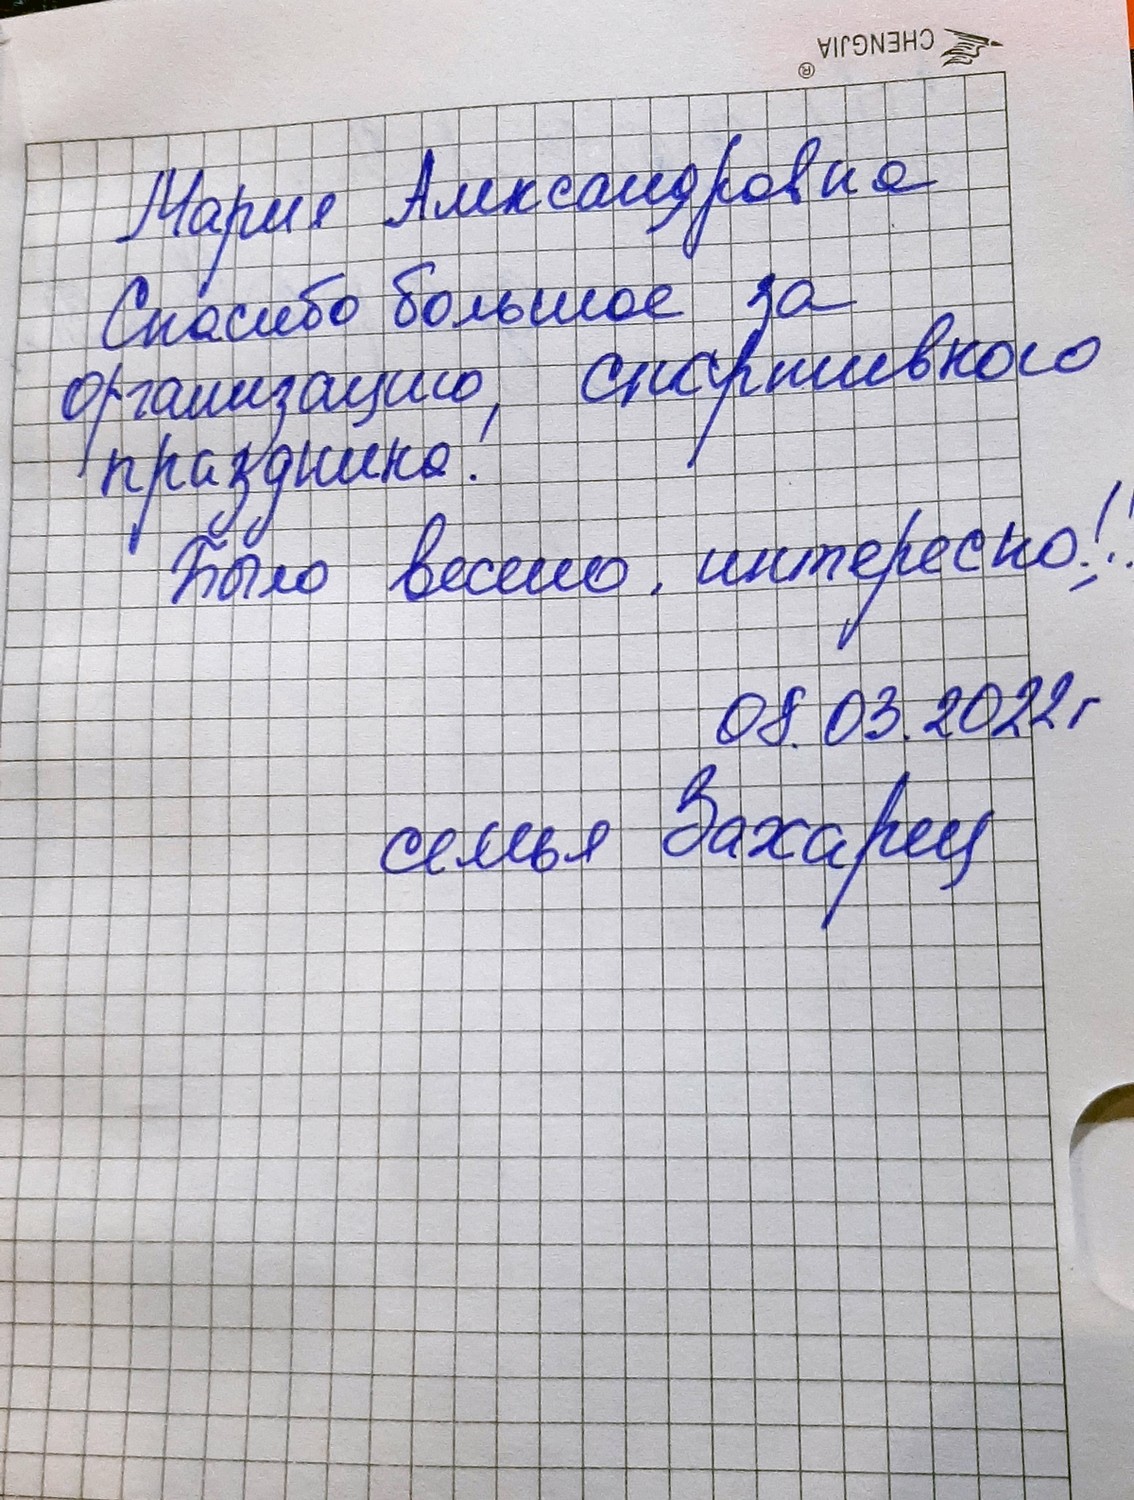 CHENGJIA
®
Мария Александровна
Спасибо большое за
организацию, спортивного
праздника!
Было весело, интересно!!
08.03.2022г
семья Захарец